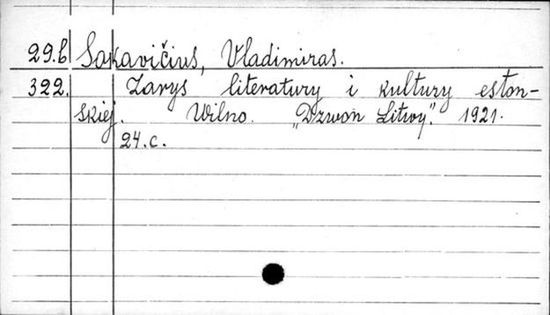 29.b Sakavičius, Vladimiras.
322. Zarys literatury i kultury eston-
skiej. Wilno. „Dzwon Litwy". 1921.
24.c.